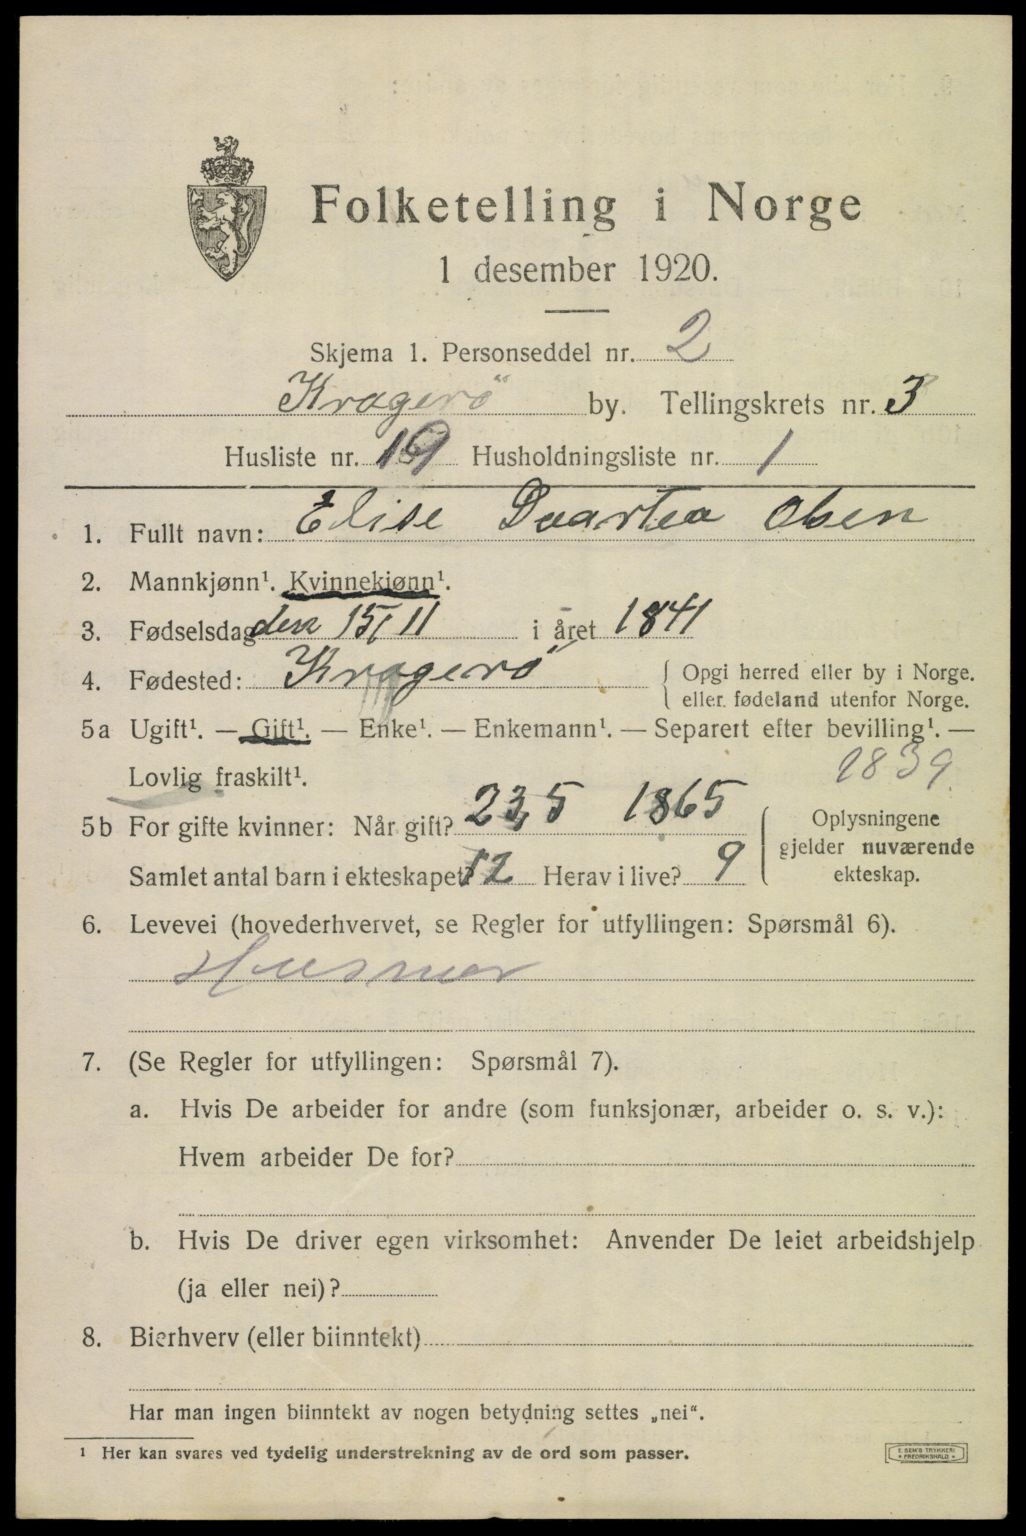 Folketelling i Norge
1 desember 1920.
Skjema 1. Personseddel nr. 2
Kragerö by. Tellingskrets nr. 3
Husliste nr. 19 Husholdningsliste nr. 1
1. Fullt navn: Elise Daartea Olsen
2. Mannkjønn¹. Kvinnekjønn¹.
3. Fødselsdag den 15/11 i året 1841
4. Fødested: Kragerö { Opgi herred eller by i Norge.
eller fødeland utenfor Norge.
5a Ugift¹. — Gift¹. — Enke¹. — Enkemann¹. — Separert efter bevilling¹. —
Lovlig fraskilt¹. 1839
5b For gifte kvinner: Når gift? 23/5 1865 { Oplysningene
gjelder nuværende
Samlet antal barn i ekteskapet? 12 Herav i live? 9 ekteskap.
6. Levevei (hovederhvervet, se Regler for utfyllingen: Spørsmål 6).
Husmor
7. (Se Regler for utfyllingen: Spørsmål 7).
a. Hvis De arbeider for andre (som funksjonær, arbeider o. s. v.):
Hvem arbeider De for?
b. Hvis De driver egen virksomhet: Anvender De leiet arbeidshjelp
(ja eller nei)?
8. Bierhverv (eller biinntekt)
Har man ingen biinntekt av nogen betydning settes „nei“.
¹ Her kan svares ved tydelig understrekning av de ord som passer.
E. SEM'S TRYKKERI
* FREDRIKSHALD *